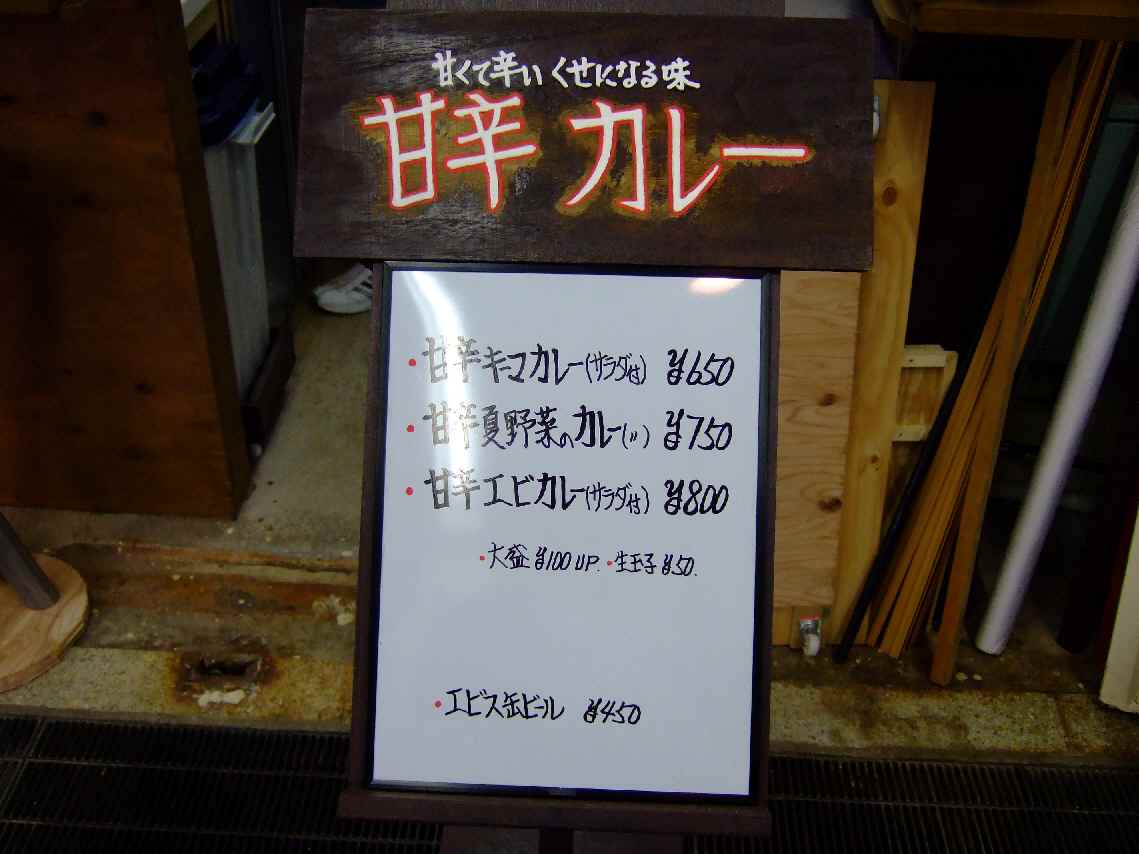 甘くて辛い くせになる味
甘辛 カレー
・甘辛キーマカレー(サラダ付) ¥650
・甘辛夏野菜のカレー(〃) ¥750
・甘辛エビカレー(サラダ付) ¥800
・大盛 ¥100 UP. ・生玉子 ¥50.
・エビス缶ビール ¥450